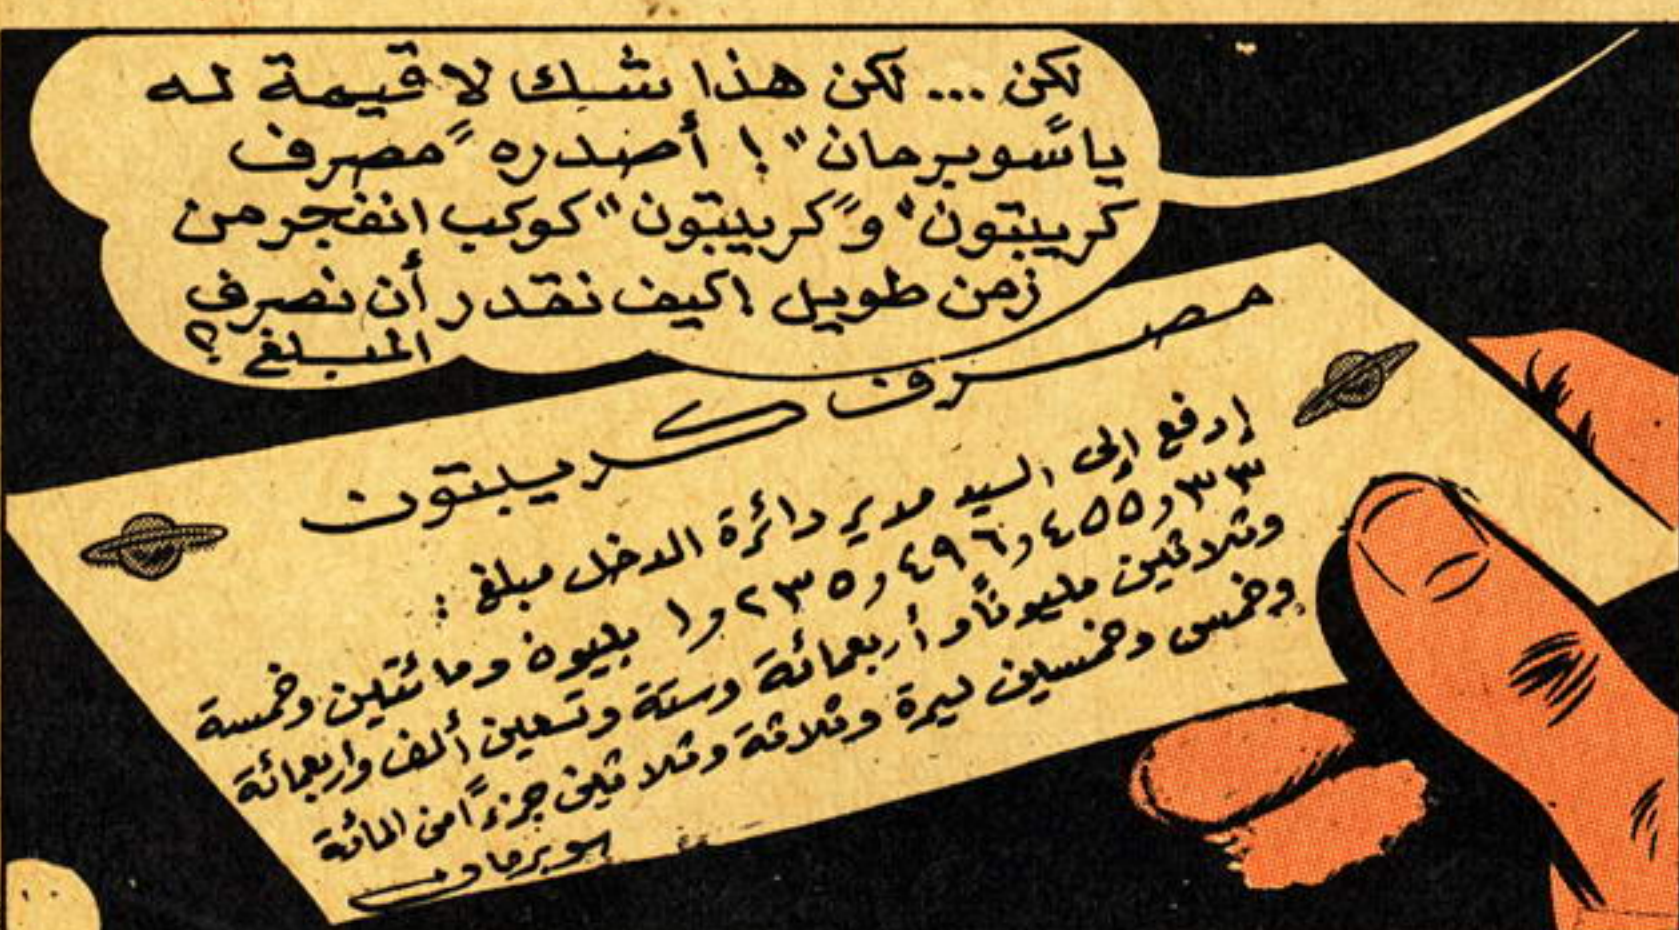 لكن ... لكن هذا شك لا قيمة له
يا "سوبرمان" ! أصدره "مصرف
كريبتون" و"كريبتون" كوكب انفجر من
زمن طويل ! كيف نقدر أن نصرف
المبلغ ؟
مصرف كريبتون
إدفع إلى السيد مدير دائرة الدخل مبلغ :
٣٣ و٤٥٥ و٤٩٦ و٢٣٥ و١ بليون ومائتين وخمسة
وثلاثين مليوناً وأربعمائة وستة وتسعين ألف واربعمائة
وخمس وخمسين ليرة وثلاثة وثلاثين جزءاً من المائة
سوبرمان